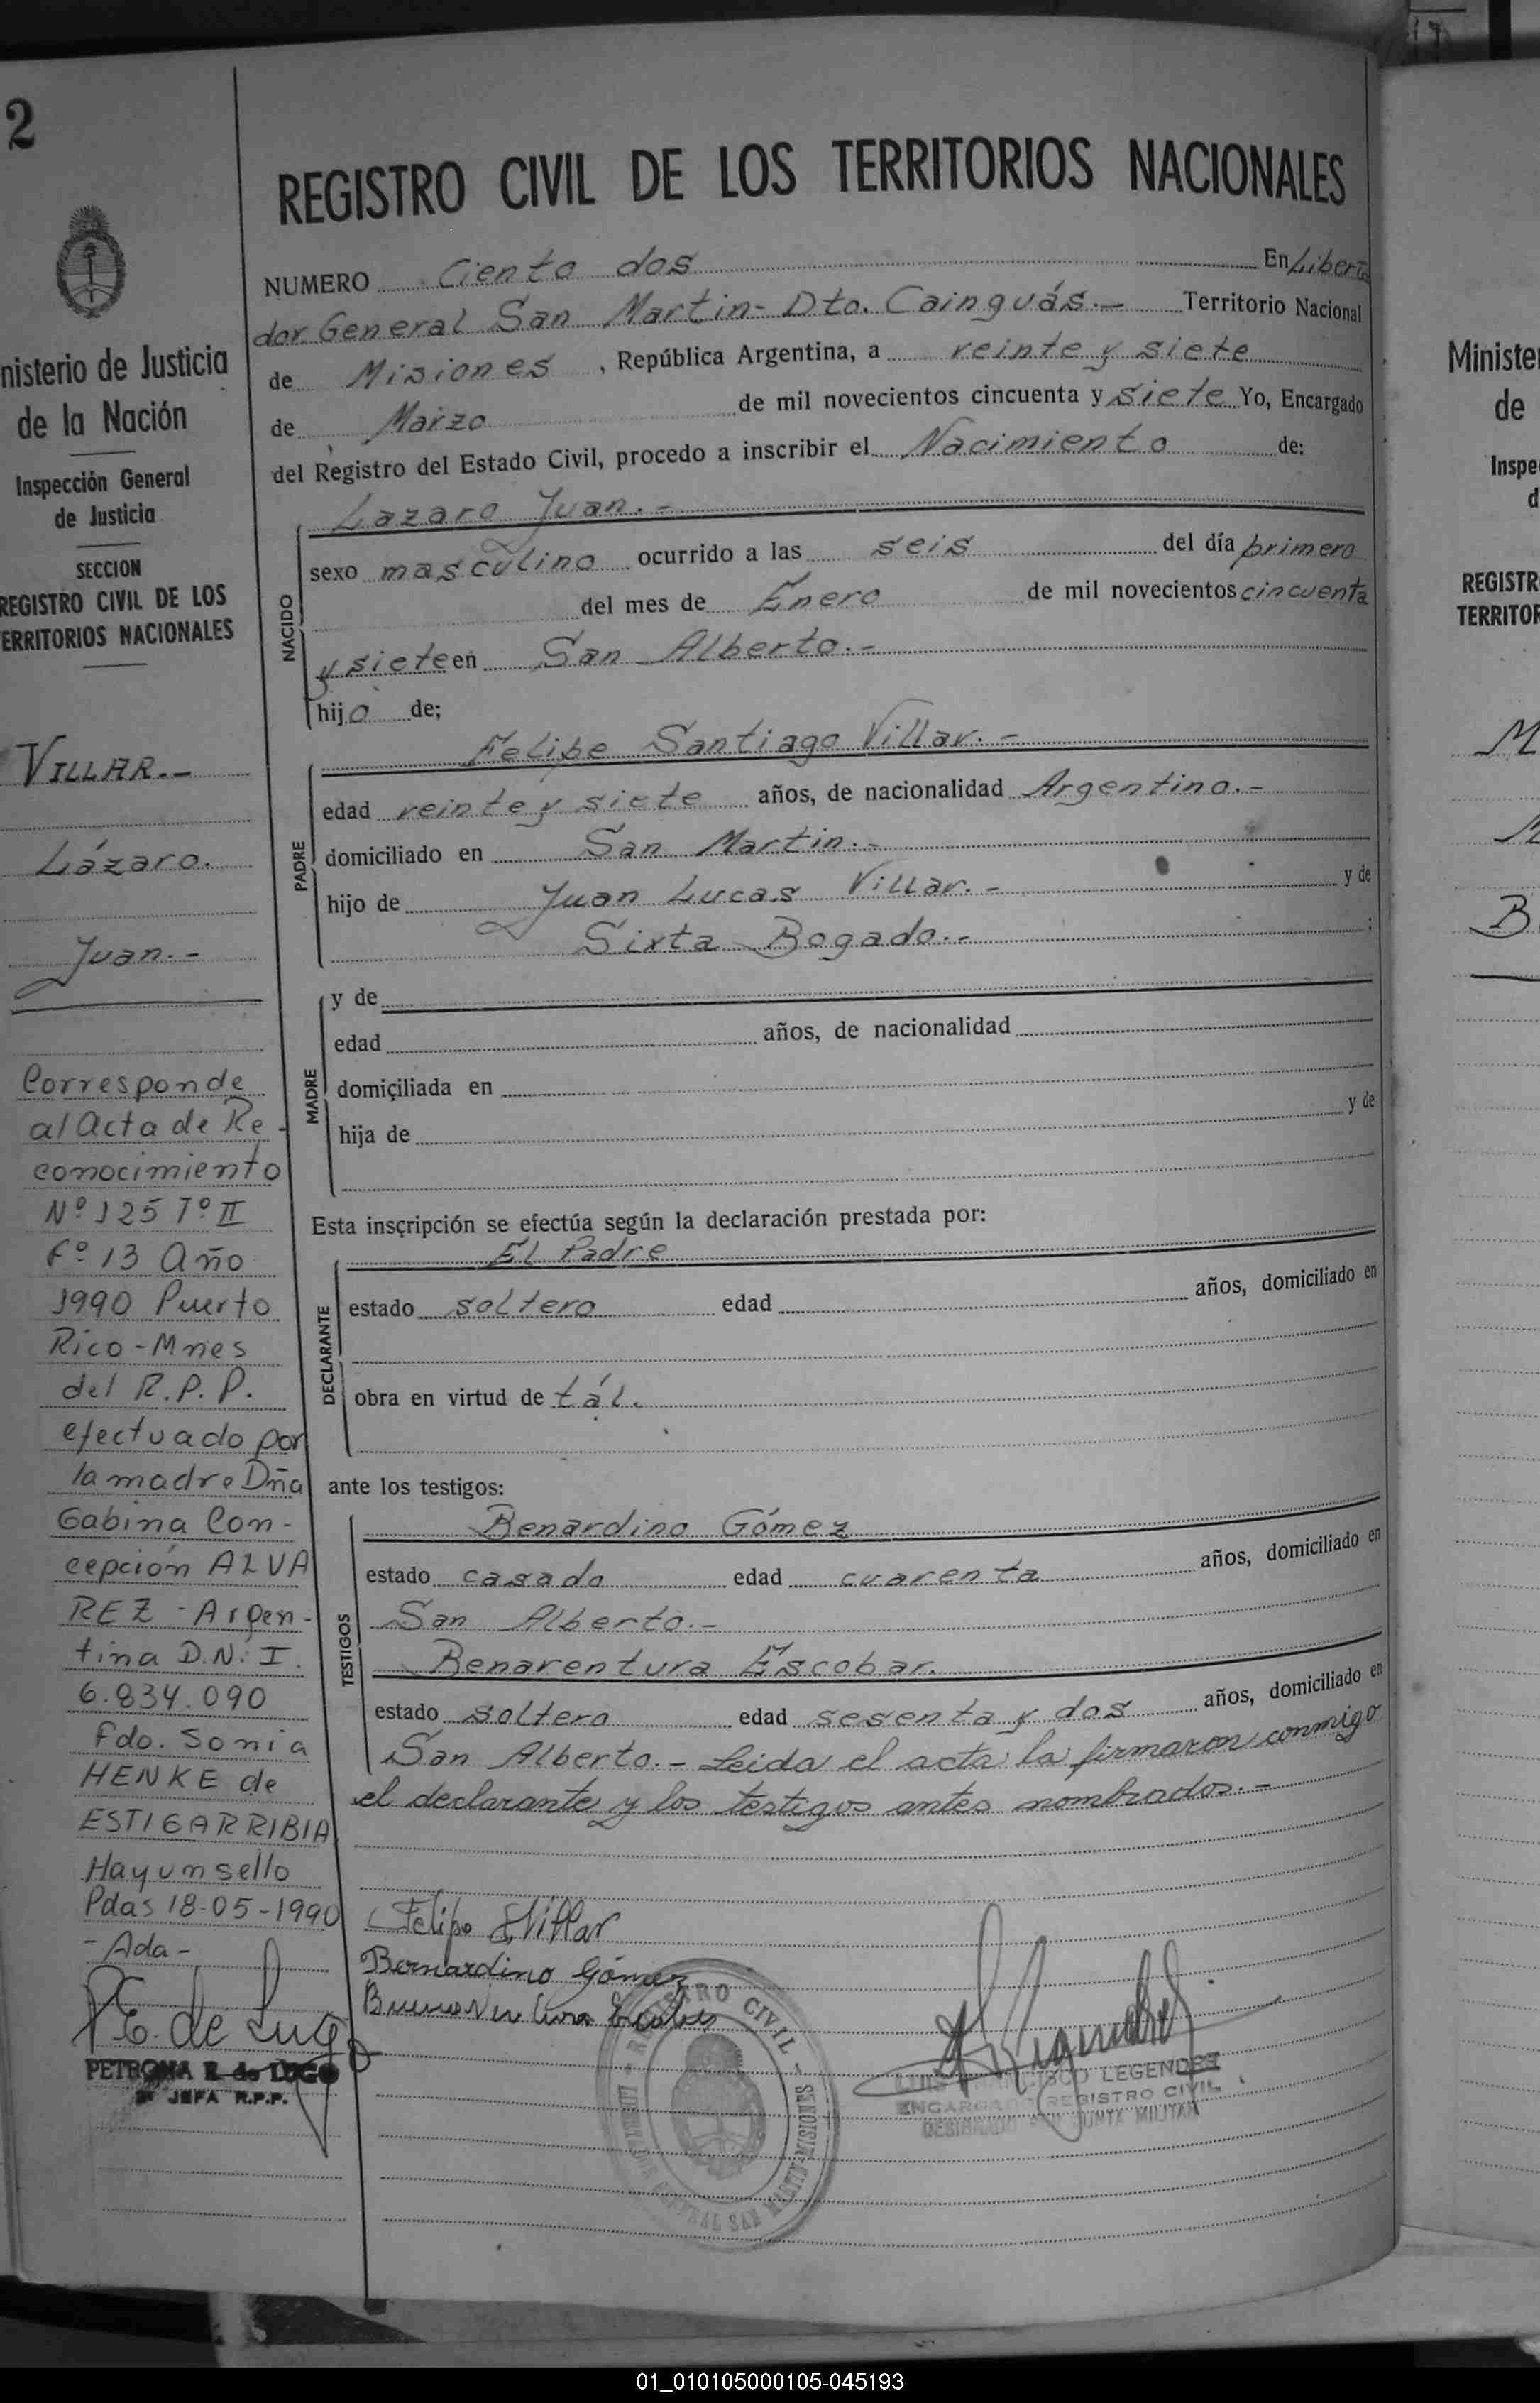 2
nisterio de Justicia
de la Nación
Inspección General
de Justicia
SECCION
REGISTRO CIVIL DE LOS
ERRITORIOS NACIONALES
VILLAR.-
Lázaro.
Juan.-
Corresponde
al Acta de Re-
conocimiento
Nº 125 Tº II
Fº 13 Año
1990 Puerto
Rico-Mnes
del R.P.P.
efectuado por
la madre Dña
Gabina Con-
cepción ALVA
REZ - Argen-
tina D.N.I.
6.834.090
Fdo. Sonia
HENKE de
ESTIGARRIBIA
Hay un sello
Pdas 18-05-1990
-Ada-
P.E. de Lugo
PETRONA E. de LUGO
JEFA R.P.P.
REGISTRO CIVIL DE LOS TERRITORIOS NACIONALES
NUMERO Ciento dos En Liberta
dor General San Martin- Dto. Cainguás.- Territorio Nacional
de Misiones, República Argentina, a veinte y siete
de Marzo de mil novecientos cincuenta y siete Yo, Encargado
del Registro del Estado Civil, procedo a inscribir el Nacimiento de:
Lazaro Juan.-
NACIDO
sexo masculino ocurrido a las seis del día primero
del mes de Enero de mil novecientos cincuenta
y siete en San Alberto.-
hijo de;
Felipe Santiago Villar.-
PADRE
edad veinte y siete años, de nacionalidad Argentino.-
domiciliado en San Martin.-
hijo de Juan Lucas Villar.- y de
Sixta Bogado.- ;
MADRE
y de
edad años, de nacionalidad
domiciliada en
hija de y de
Esta inscripción se efectúa según la declaración prestada por:
El Padre
DECLARANTE
estado soltero edad años, domiciliado en
obra en virtud de tál.
ante los testigos:
Benardino Gómez
TESTIGOS
estado casado edad cuarenta años, domiciliado en
San Alberto.-
Benaventura Escobar.
estado soltero edad sesenta y dos años, domiciliado en
San Alberto.- Leida el acta la firmaron conmigo
el declarante y los testigos antes nombrados.-
Felipe S. Villar
Bernardino Gómez
REGISTRO CIVIL - MISIONES
LIBERTADOR GENERAL SAN MARTIN
LUIS FRANCISCO LEGENDRE
ENCARGADO REGISTRO CIVIL
DESIGNADO POR JUNTA MILITAR
Ministe
de
Inspe
d
REGISTR
TERRITOR
M
B
01_010105000105-045193